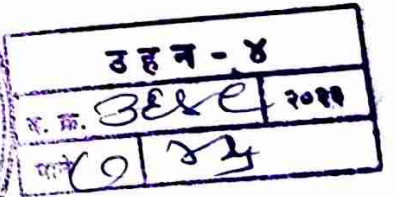 उहन - ४
द. क्र. ३६४९ २०११
पाने ७